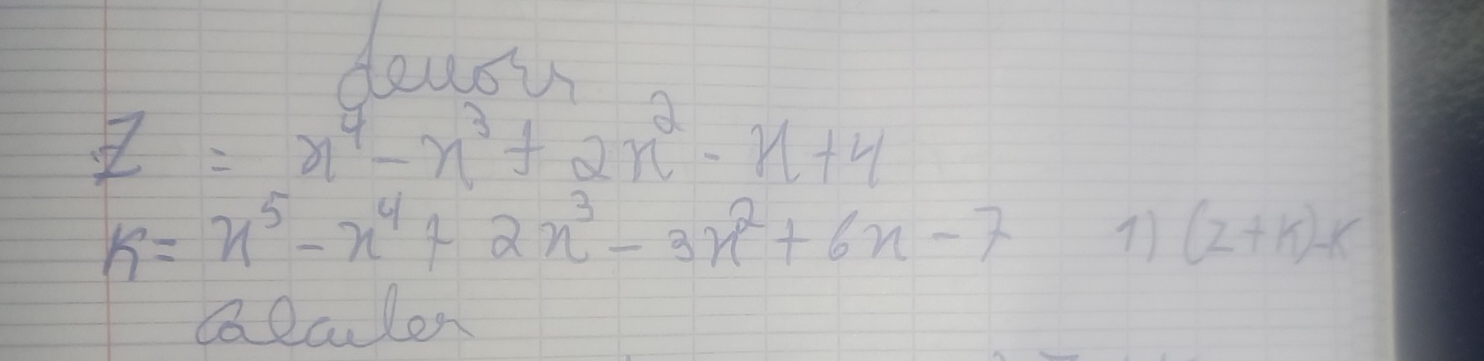 devoir
Z = x⁴ - x³ + 2x² - x + 4
K = x⁵ - x⁴ + 2x³ - 3x² + 6x - 7 1) (Z+K)-K
Calculer